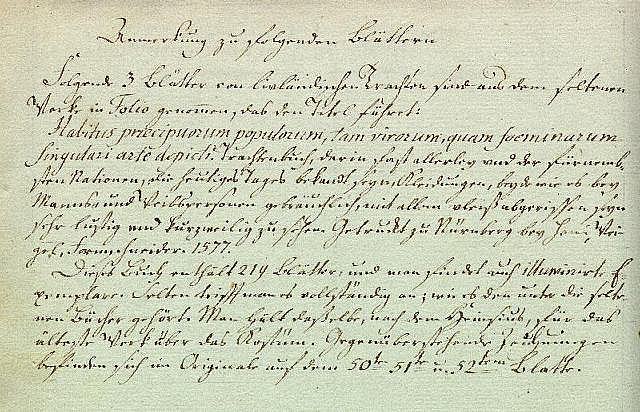 Anmerkung zu folgenden Blättern
Folgende 3 Blätter von livländischen Trachten sind aus dem seltenen
Werke in Folio genommen, das den Titel führet:
Habitus praecipuorum populorum, tam virorum, quam foeminarum
singulari arte depicti. Trachtenbuch, darin fast allerley und der fürnemb-
sten Nationen, die heutiges Tages bekandt seyn, Kleidungen, beyde wie es bey
Manns und Weibspersonen gebräuchlich, mit allem vleiß abgerissen seyn
sehr lustig und kurzweilig zu sehen. Getruckt zu Nürnberg bey Hans Wei-
gel, Formschneider. 1577.
Dieses Buch enthält 219 Blätter, und man findet auch illuminirte E-
xemplare. Selten trifft man es vollständig an, wie es den unter die selte-
nen Bücher gehört. Man hält dasselbe, nach dem für das
älteste Werk über das Kostüm. Gegenüberstehende Zeichnungen
befinden sich im Originale auf dem 50te 51te u. 52ten Blatte.